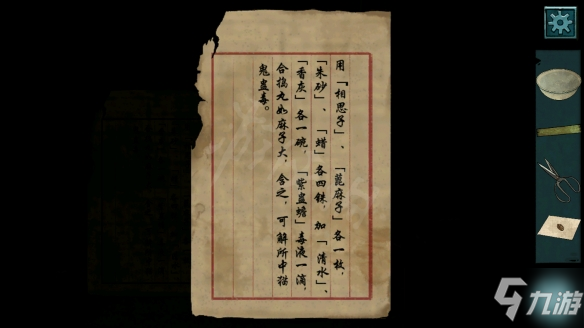 用「相思子」、「蓖麻子」各一枚，
「朱砂」、「蜡」各四銖，加「清水」、
「香灰」各一碗，「紫蛊蟾」毒液一滴，
合捣丸如麻子大，含之，可解所中猫
鬼蛊毒。
九游